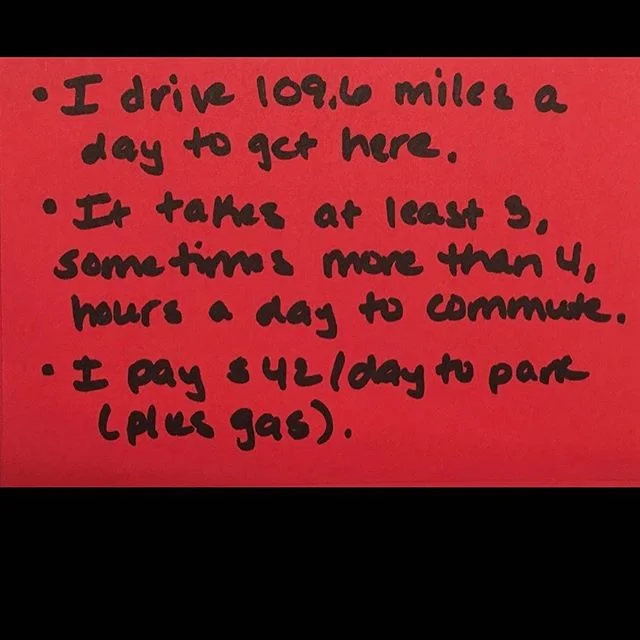 • I drive 109.6 miles a
day to get here.
• It takes at least 3,
sometimes more than 4,
hours a day to commute.
• I pay $42/day to park
(plus gas).